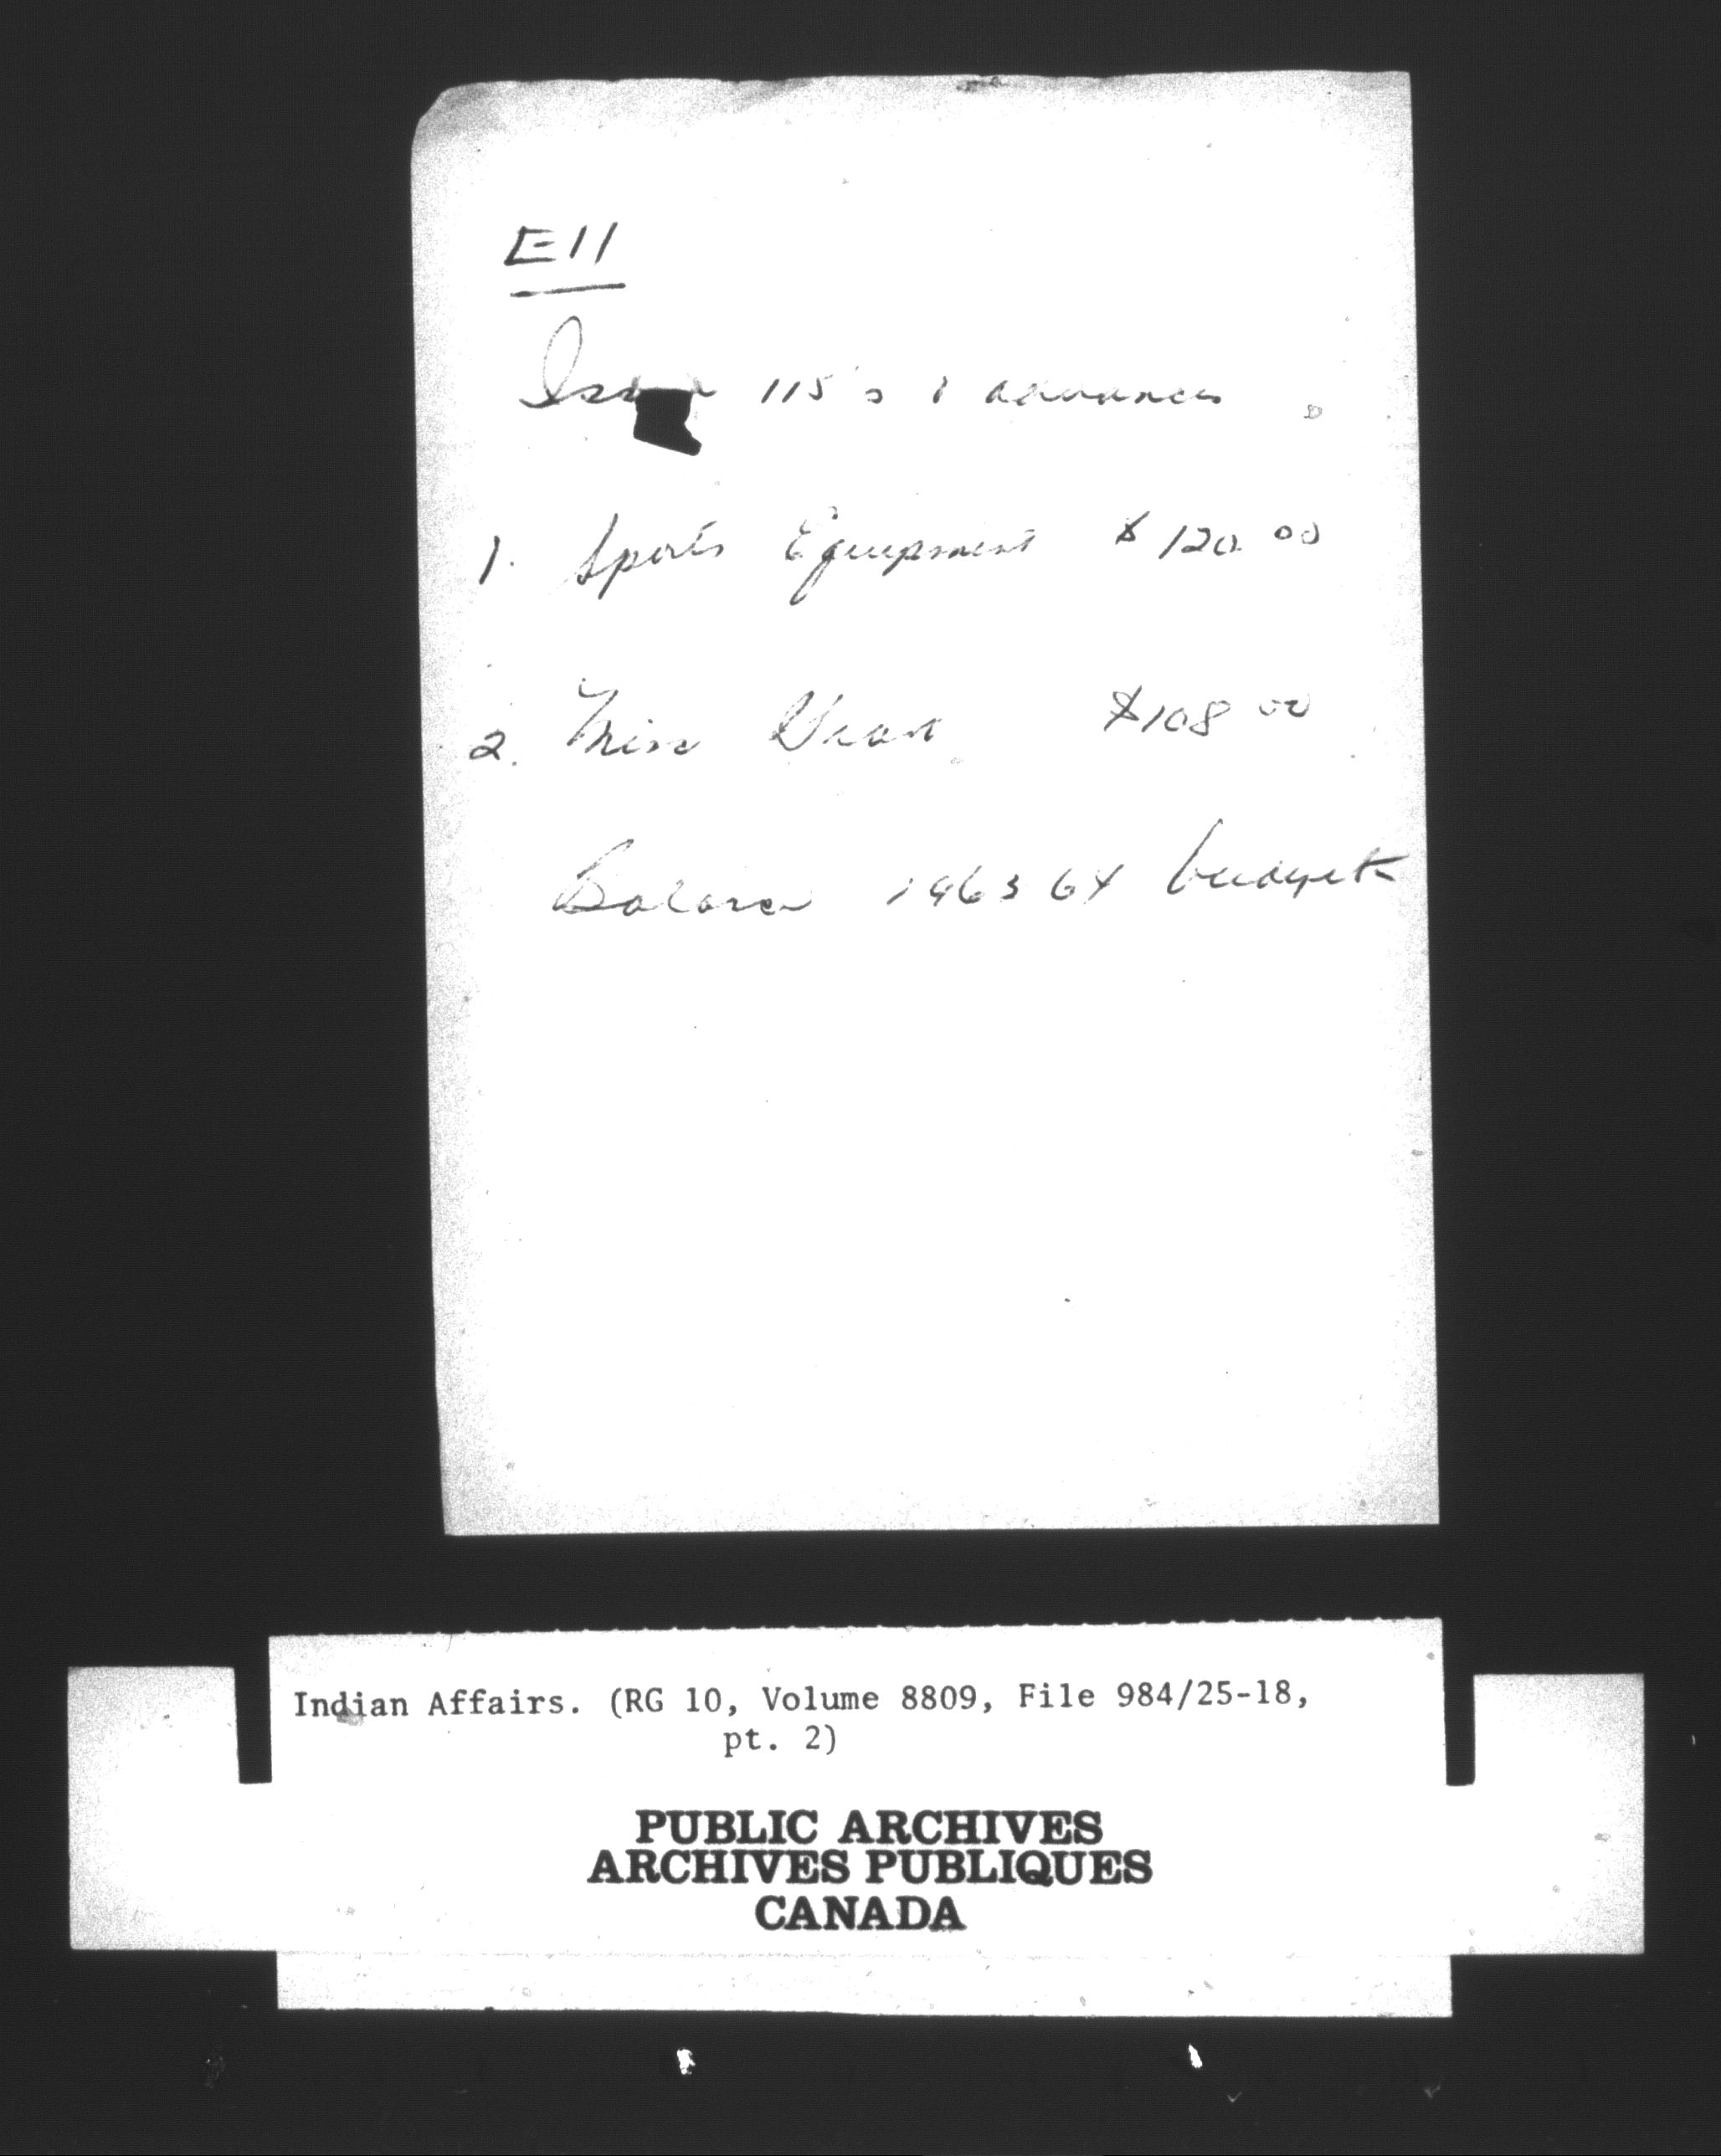 E11
Issue 115's & advances
1. Sports Equipment $120.00
2. Misc Grant $108 00
Balance 1963 64 budget
Indian Affairs. (RG 10, Volume 8809, File 984/25-18,
pt. 2)
PUBLIC ARCHIVES
ARCHIVES PUBLIQUES
CANADA